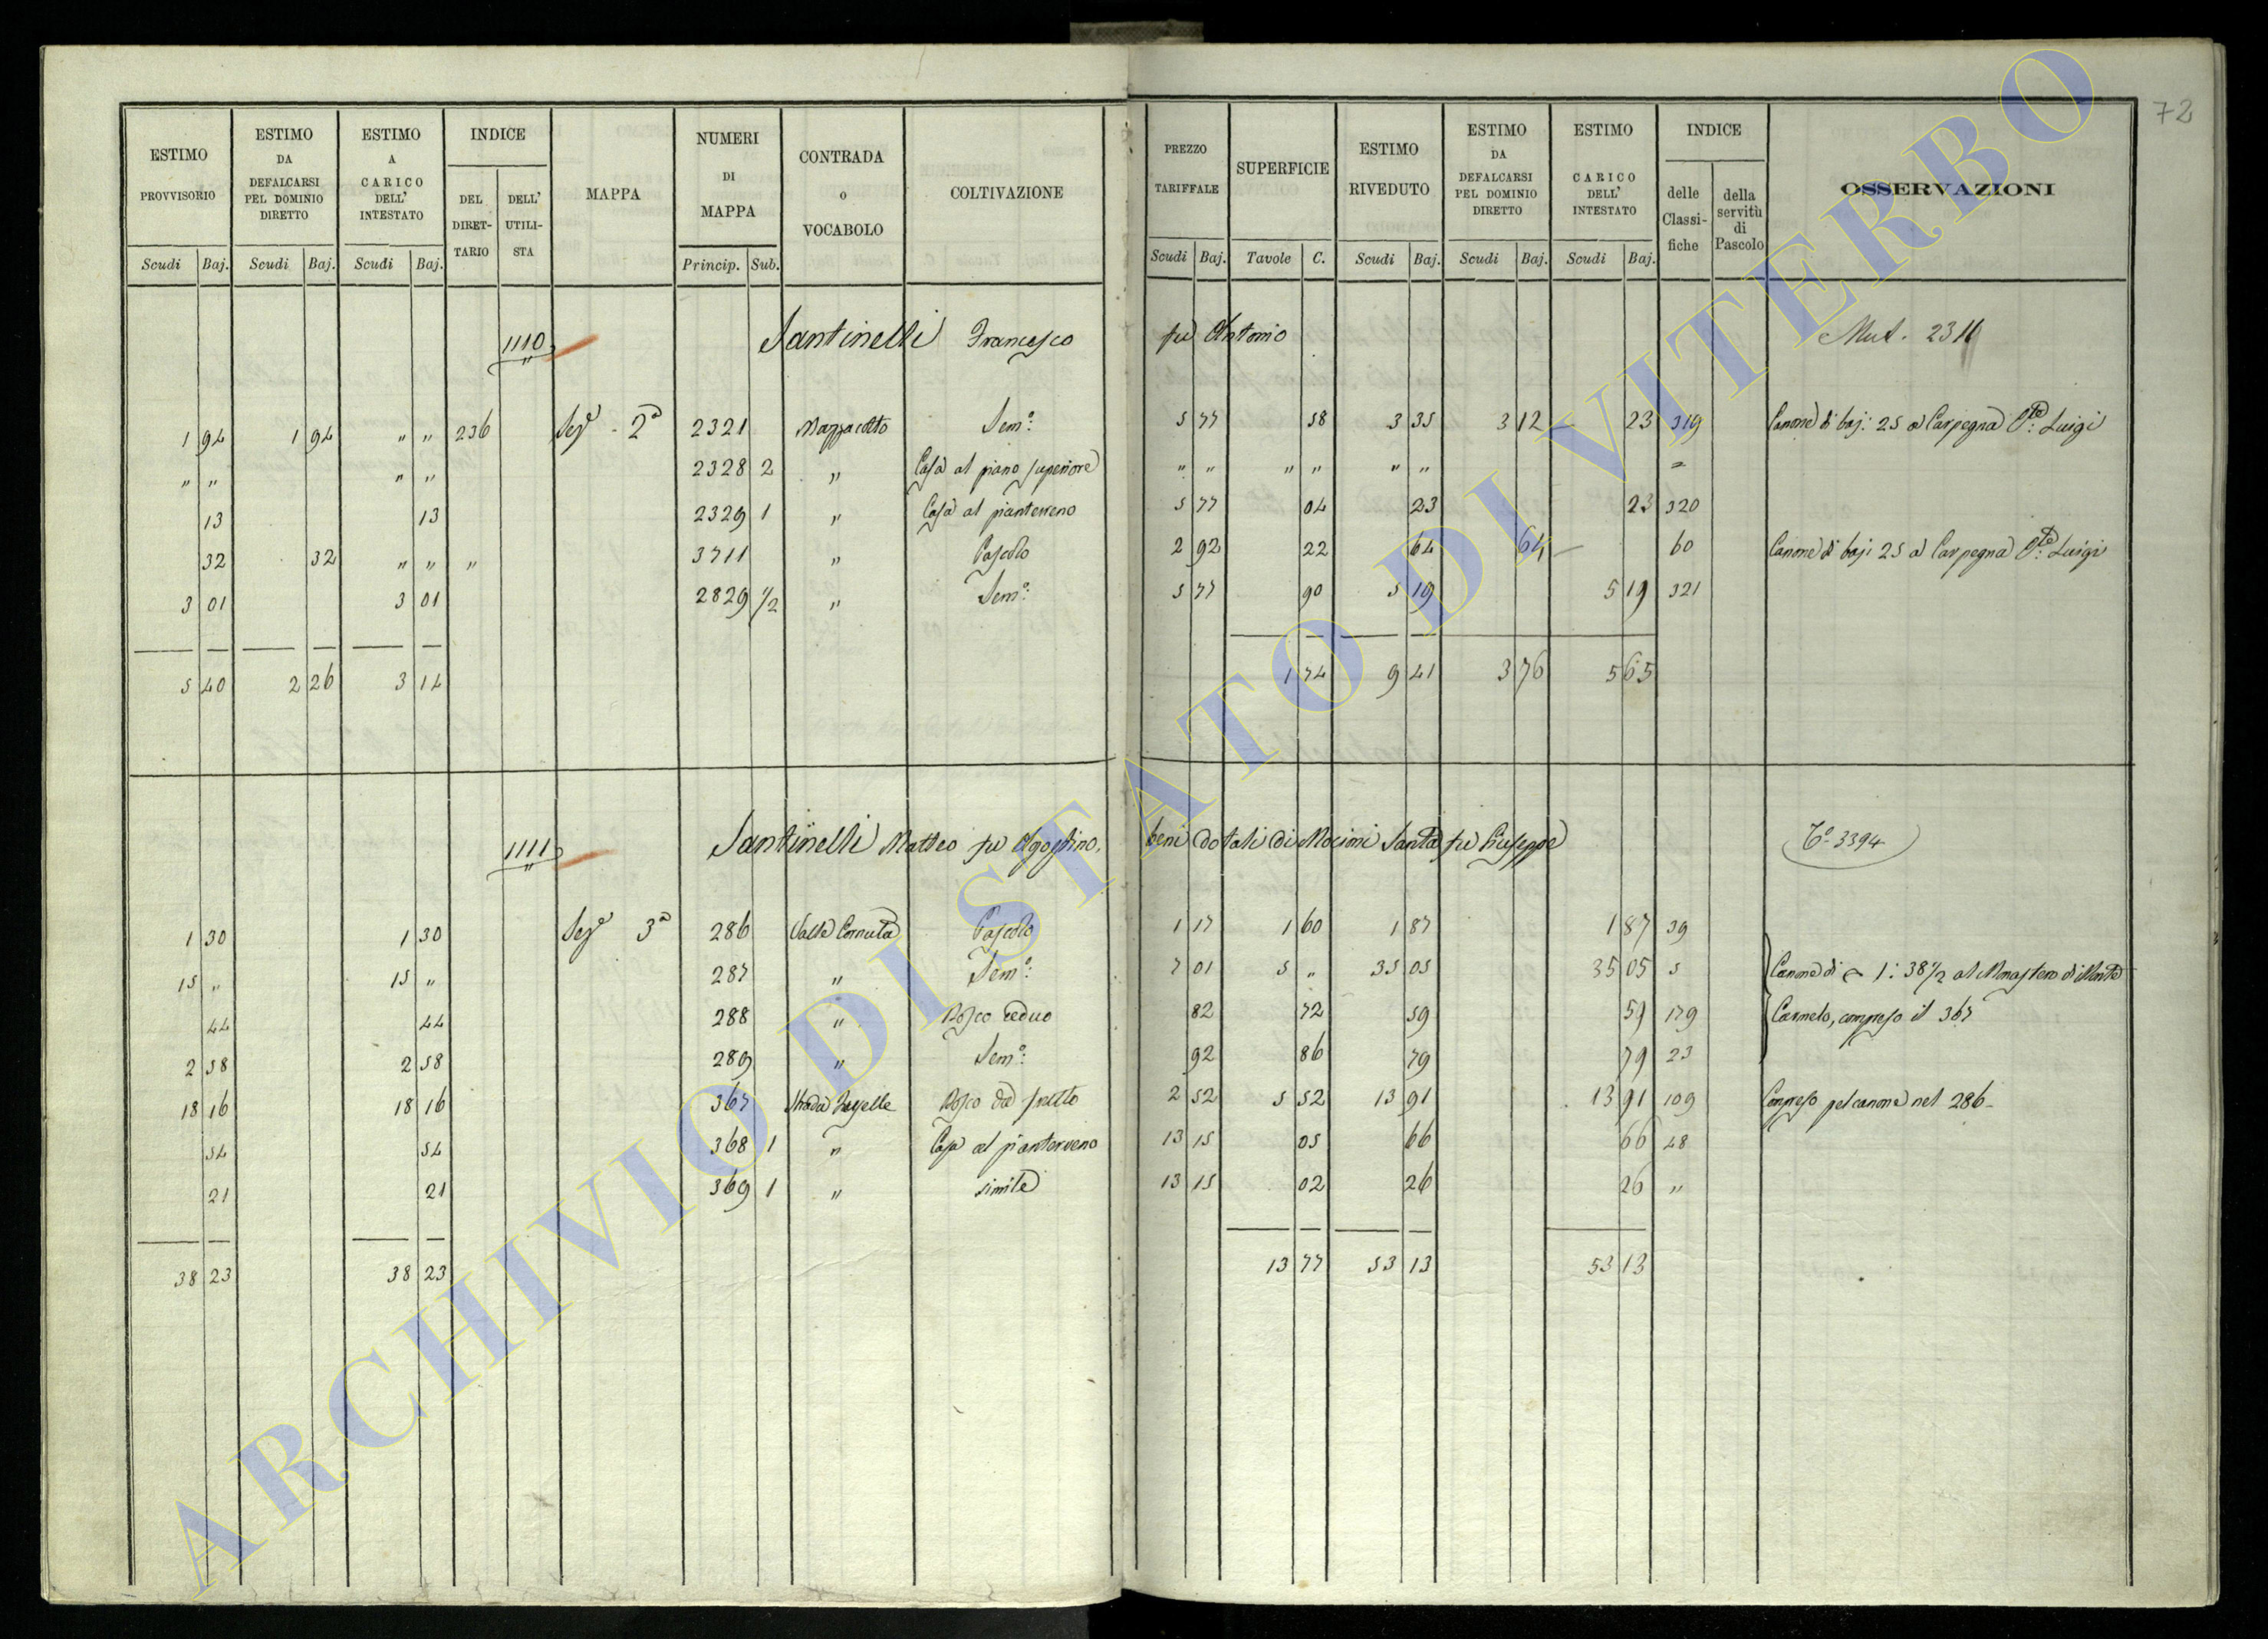 72
ESTIMO PROVVISORIO | ESTIMO DA DEFALCARSI PEL DOMINIO DIRETTO | ESTIMO A CARICO DELL' INTESTATO | INDICE DEL DIRETTARIO | DELL' UTILISTA | MAPPA | NUMERI DI MAPPA | CONTRADA o VOCABOLO | COLTIVAZIONE | PREZZO TARIFFALE | SUPERFICIE | ESTIMO RIVEDUTO | ESTIMO DA DEFALCARSI PEL DOMINIO DIRETTO | ESTIMO A CARICO DELL' INTESTATO | INDICE delle Classifiche | della servitù di Pascolo | OSSERVAZIONI
Scudi Baj. Scudi Baj. Scudi Baj. Princip. Sub. Scudi Baj. Tavole C. Scudi Baj. Scudi Baj. Scudi Baj.
1110 Santinelli Francesco fu Antonio Mut. 2311
1 94 1 94 " " 236 Seze 2a 2321 Sem: 5 77 58 3 35 3 12 23 319 Canone di baj: 25 a Carpegna Luigi
" " " " 2328 2 " Casa al piano superiore " " " " " " =
13 13 2329 1 " Casa al pianterreno 5 77 04 23 23 320
32 32 " " " 3711 " Pascolo 2 92 22 64 64 60 Canone di baj: 25 a Carpegna Luigi
3 01 3 01 2829 1/2 " Sem: 5 77 90 5 19 5 19 321
5 40 2 26 3 14 1 74 9 41 3 76 5 65
1111 Santinelli Matteo fu Agostino, beni dotali di Mocioni Santa fu Giuseppe To 3394
1 30 1 30 Seze 3a 286 Valle Cornuta Pascolo 1 17 1 60 1 87 1 87 39
15 " 15 " 287 " Sem: 7 01 5 " 35 05 35 05 5 Canone di 1: 38 1/2 al Monastero di Monte
44 44 288 " Bosco ceduo 82 72 59 59 179 Carmelo, compreso il 367
2 58 2 58 289 " Sem: 92 86 79 79 23
18 16 18 16 367 Strada Bosco da frutto 2 52 5 52 13 91 13 91 109 Compreso pel canone nel 286
54 54 368 1 " Casa al pianterreno 13 15 05 66 66 48
21 21 369 1 " simile 13 15 02 26 26 "
38 23 38 23 13 77 53 13 53 13
ARCHIVIO DI STATO DI VITERBO